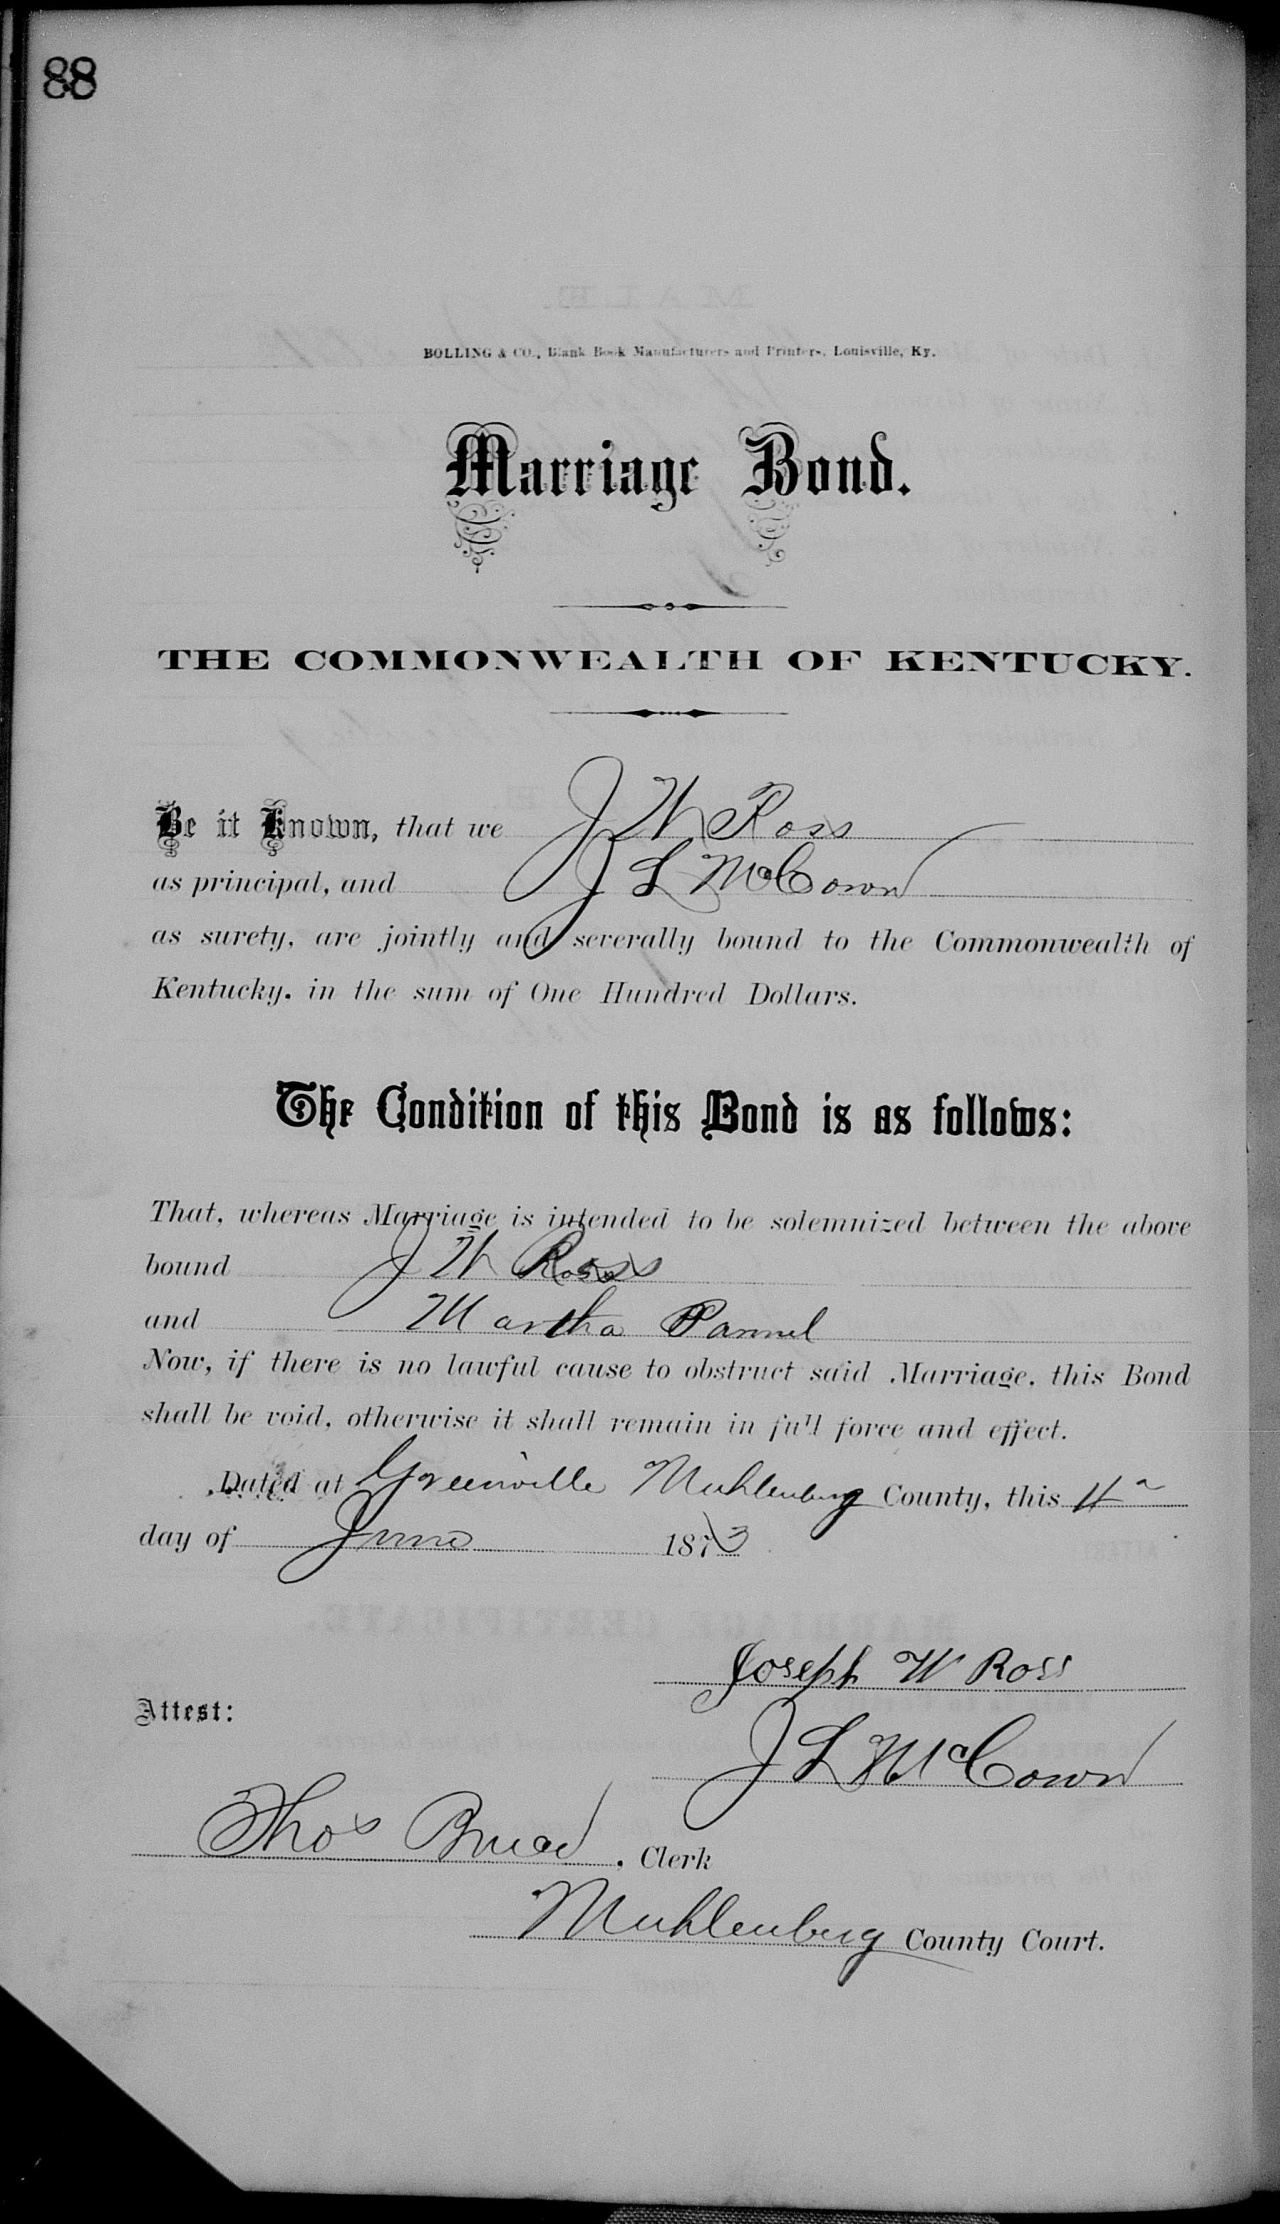 88
BOLLING & CO., Blank Book Manufacturers and Printers, Louisville, Ky.
Marriage Bond.
THE COMMONWEALTH OF KENTUCKY.
Be it Known, that we J W Ross
as principal, and J L McCown
as surety, are jointly and severally bound to the Commonwealth of
Kentucky. in the sum of One Hundred Dollars.
The Condition of this Bond is as follows:
That, whereas Marriage is intended to be solemnized between the above
bound J W Ross
and Martha Pannel
Now, if there is no lawful cause to obstruct said Marriage, this Bond
shall be void, otherwise it shall remain in full force and effect.
Dated at Greenville Muhlenburg County, this
day of June 1873
Joseph W Ross
Attest:
J L McCown
Thos , Clerk
Muhlenburg County Court.